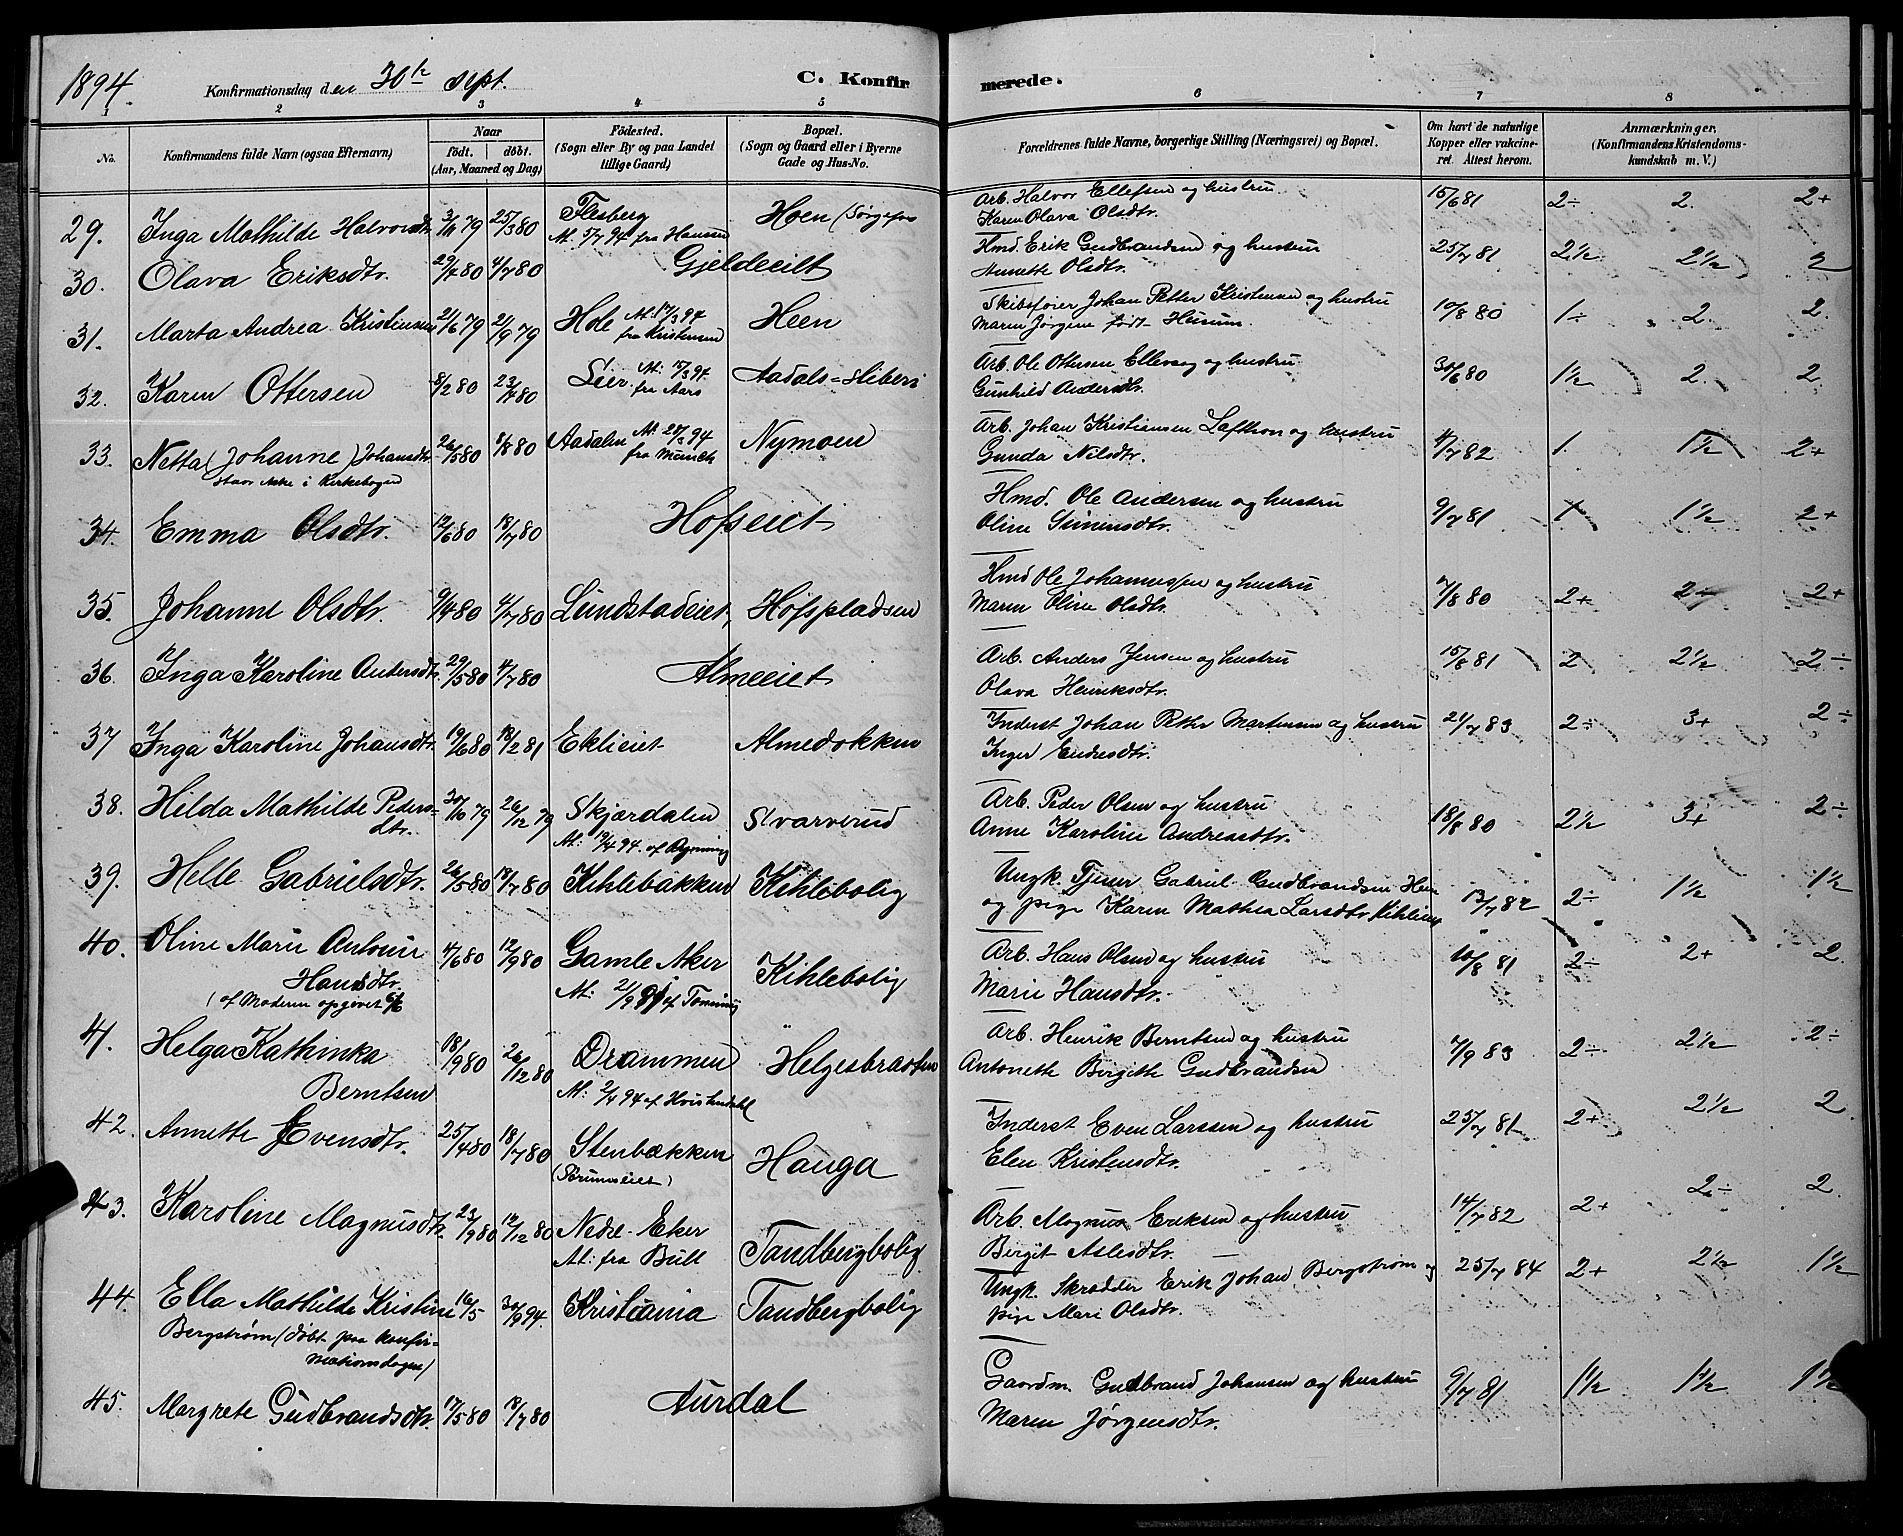 1894. Konfirmationsdag den 30te Sept. C. Konfirmerede.
1 2 3 4 5 6 7 8
No. Konfirmandens fulde Navn (ogsaa Efternavn) Naar født. døbt. (Aar, Maaned og Dag) Fødested. (Sogn eller By og paa Landet tillige Gaard.) Bopæl. (Sogn og Gaard eller i Byerne Gade og Hus-No. Forældrenes fulde Navne, borgerlige Stilling (Næringsvei) og Bopæl. Om havt de naturlige Kopper eller vakcineret. Attest herom. Anmærkninger. (Konfirmandens Kristendomskundskab m. V.)
29. Inga Mathilde Halvorsdtr. 25/3 80 Flesberg Hoen Arb. Halvor Ellefsen og hustru 15/6 81 2÷ 2. 2+
At. 5/7 94 fra Hansen Karen Olava Olsdtr.
30. Olava Eriksdtr. 29/4 80 4/7 80 Gjeldeeiet Hmd. Erik Gudbrandsen og hustru 25/7 81 2½ 2½ 2
Olsdtr.
31. Marta Andrea Kristensen 21/6 79 21/9 79 Hole At. 17/3 94 Heen Skibsfører Johan Petter Kristensen og hustru 10/8 80 1÷ 2. 2.
fra Kristensen Maren Jørgine født Husum.
32. Karen Ottersen 8/2 80 23/4 80 Lier At. 17/3 94 Aadals=Sliberi Arb. Ole Ottersen Ellevog og hustru 30/6 80 1½ 2. 2.
fra Aars Gunhild Andersdtr.
33. Netta (Johanne) Johansdtr. 26/5 80 1/8 80 Aadalen At. 20/3 94 Nymoen Arb. Johan Kristiansen Lafthon og hustru 4/7 82 1. 1½ 2+
staar ikke i Kirkebogen fra Münch Gunda Nilsdtr.
34. Emma Olsdtr. 12/6 80 18/7 80 Hofseiet Hmd. Ole Andersen og hustru 9/7 81 1 1½ 2+
Oline Simensdtr.
35. Johanne Olsdtr. 9/4 80 4/7 80 Lundstadeiet, Hofspladsen Hmd Ole Johannessen og hustru 7/8 80 2+ 2÷ 2+
Maren Oline Olsdtr.
36. Inga Karoline Andersdtr. 29/5 80 4/7 80 Almeeiet Arb. Anders Jensen og hustru 15/8 81 2 2½ 2÷
Olava Henriksdtr.
37 Inga Karoline Johansdtr. 19/6 80 18/2 81 Eklieiet Almedokken Inderst Johan Peter Martinsen og hustru 21/7 83 2÷ 3+ 2÷
Inger Endresdtr.
38. Hilda Mathilde Peders- 30/10 79 26/12 79 Skjærdalen Svarverud Arb. Peder Olsen og hustru 18/8 80 2½ 3+ 2÷
dtr. At: 19/4 94. af Ryning Anne Karoline Andreasdtr.
39. Helle Gabrielsdtr. 26/5 80 18/7 80 Kihlebakken Kihlebolig Ungk. Tjener Gabriel Gudbrandsen Hen 13/7 82 2÷ 1½ 1½
og pige Karen Mathea Larsdtr. Kihlien
40. Oline Marie Antonie 4/6 80 12/9 80 Gamle Aker Kihlebolig Arb. Hans Olsen og hustru 10/8 81 2÷ 2+ 2.
Hansdtr. At: Marie Hansdtr.
(af Moderen opgivet 6/6
41. Helga Kathinka 18/9 80 26/12 80 Drammen Helgesbraaten Arb. Henrik Berntsen og hustru 7/9 83 2÷ 2½ 2÷
Berntsen At: 2/4 94 af Hvistendahl Antonette Birgithe Gudbrandsen
42. Annette Evensdtr. 25/4 80 18/7 80 Stenbækken Hauga Inderst Even Larssen og hustru 25/7 81 2+ 2½ 2.
Elen Kristensdtr.
43. Karoline Magnusdtr. 23/9 80 12/12 80 Nedre-Eker Tandbergbolig Arb. Magnus Eriksen og hustru 14/7 82 2+ 2÷ 2.
At: fra Bull Bergit Aslesdtr.
44. Ella Mathilde Kristine 16/5 30/9 94. Kristiania Tandbergbolig Ungk. Skrædder Erik Johan Bergstrøm og 25/7 84 2+ 2½ 1½
Bergstrøm (døbt paa konfir- pige Mari Olsdtr.
mationsdagen)
45. Margrete Gudbrandsdtr. 17/5 80 18/7 80 Aurdal Gaardm. Gudbrand Johansen og hustru 9/7 81 1½ 1½ 1½
Maren Jørgensdtr.